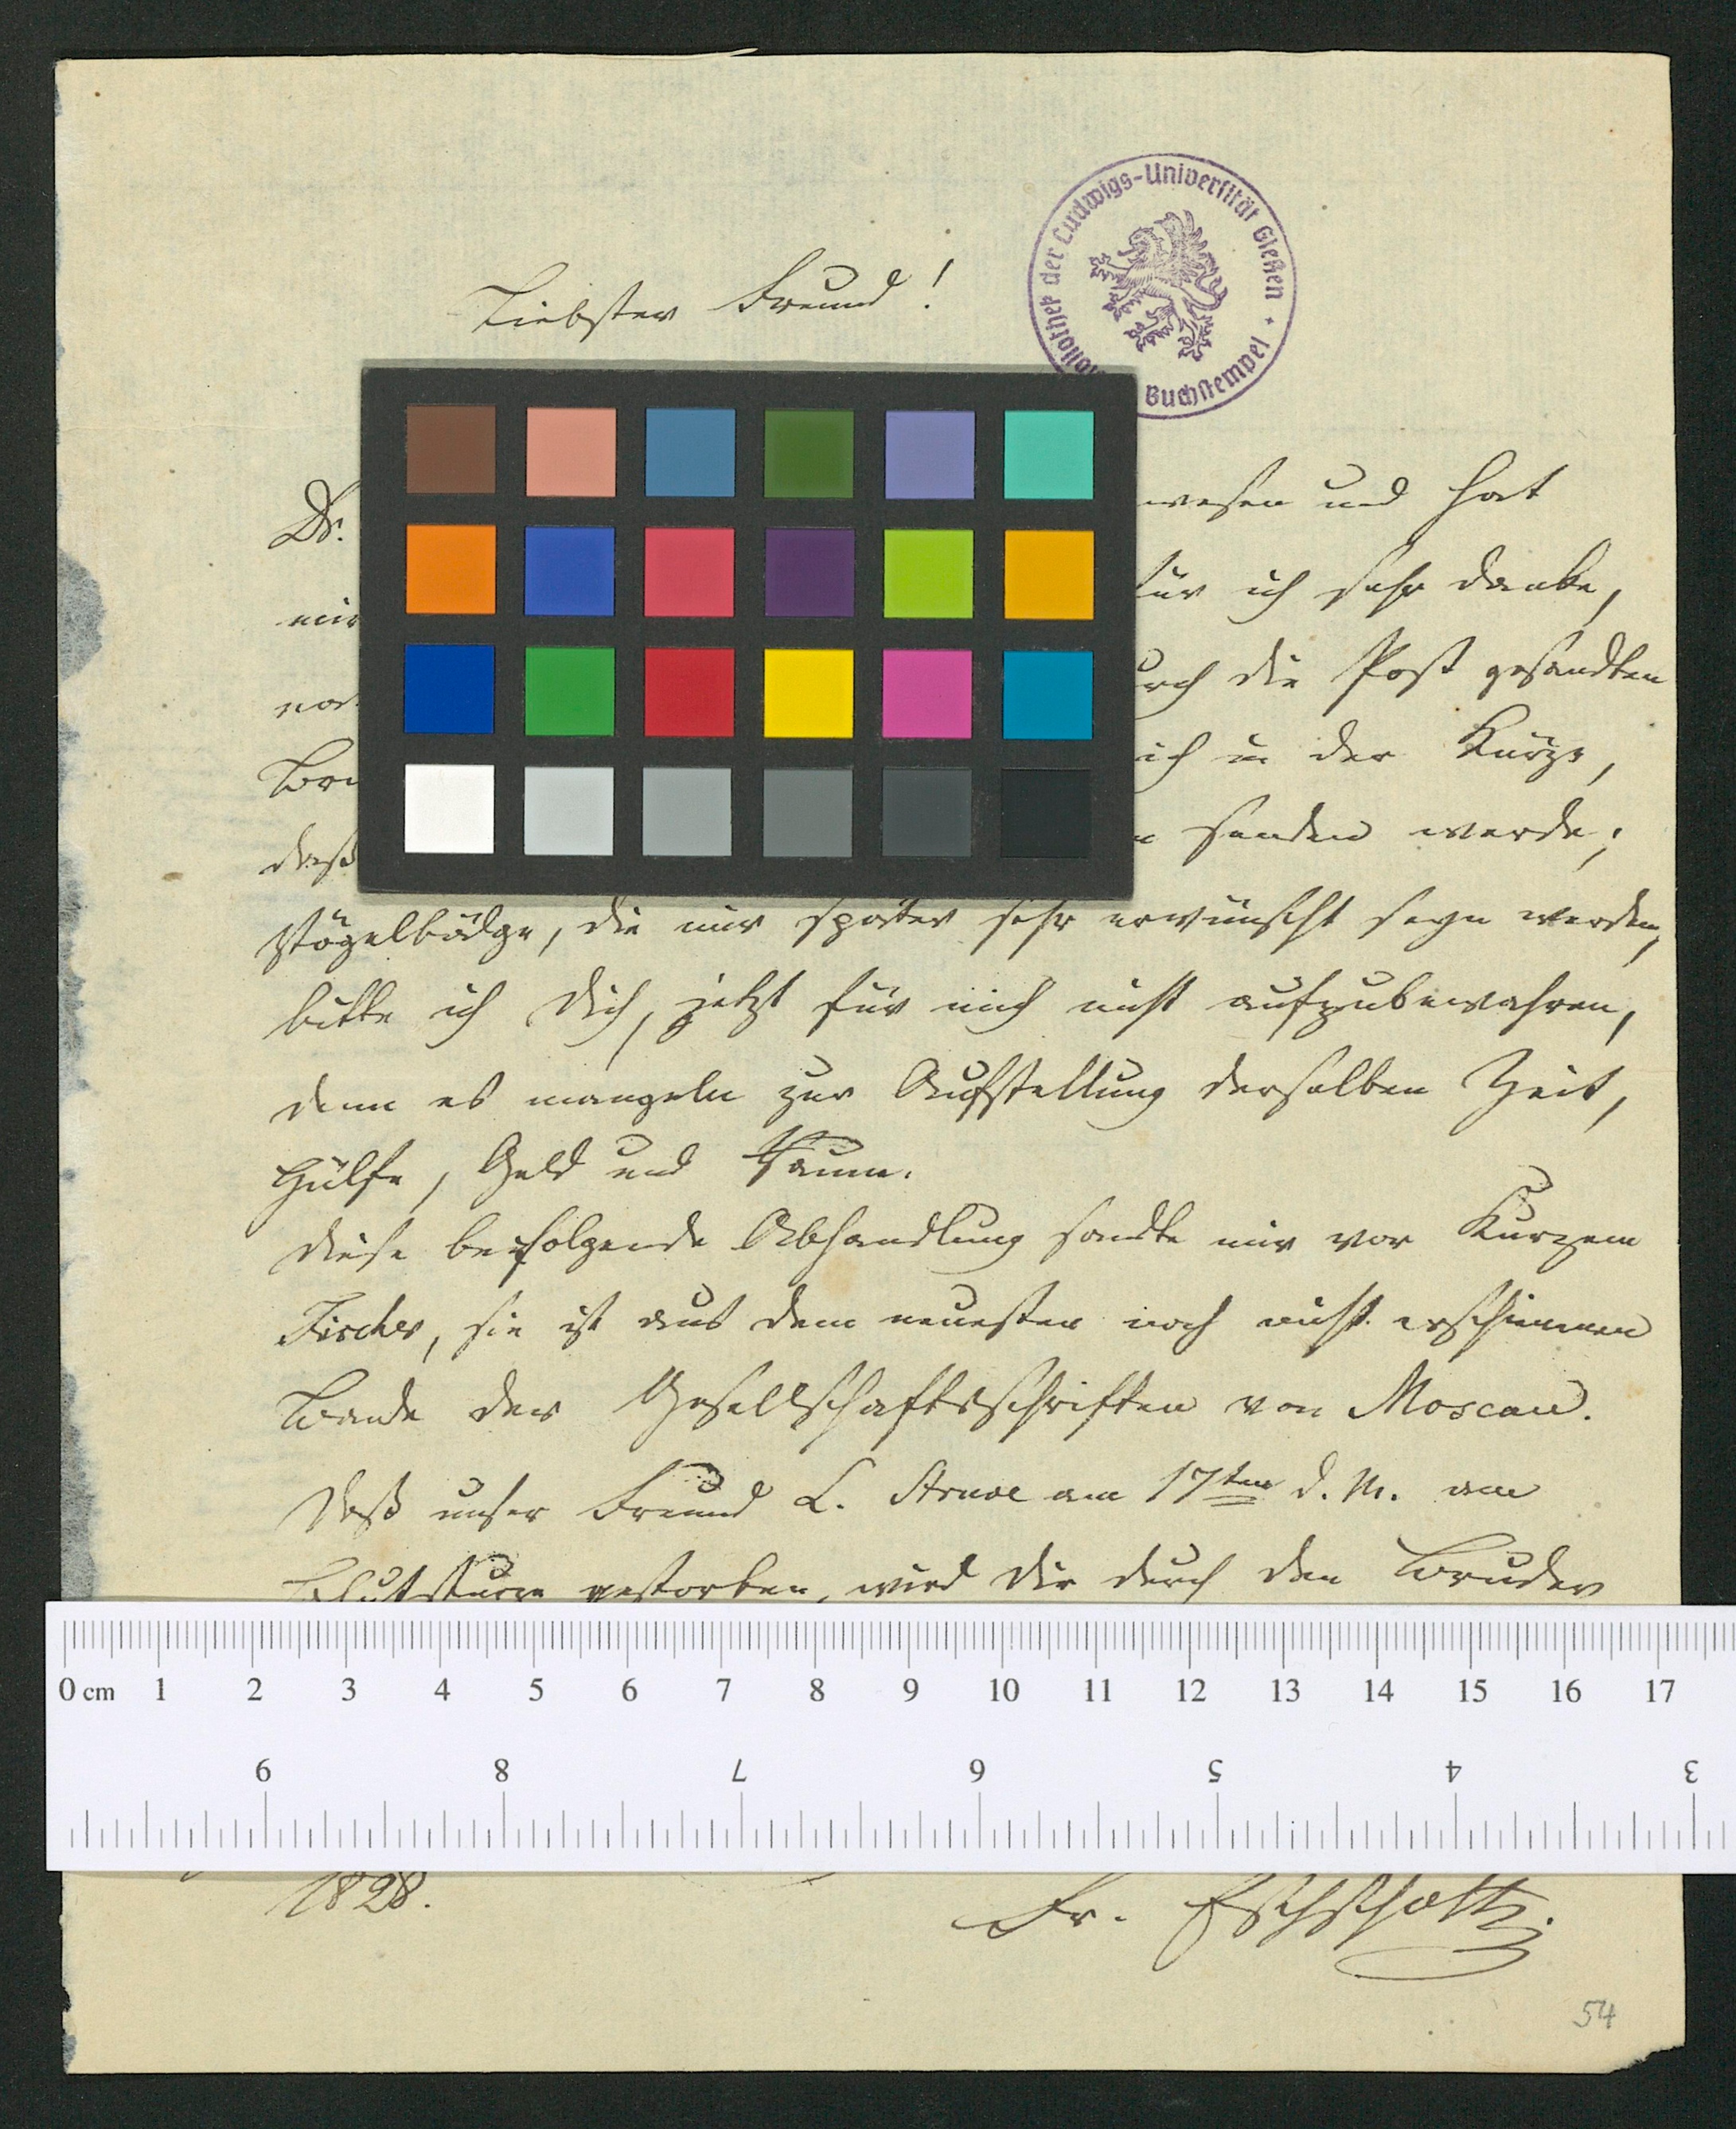 Liebster Freund!
Bibliothek der Ludwigs-Universität Gießen
Buchstempel
Dr. wesen und hat
mir für ich sehr danke,
durch die Post gesandten
ich in der Kürze,
daß senden werde;
Vögelbälge, die mir später sehr erwünscht seyn werden,
bitte ich Dich, jetzt für mich nicht aufzubewahren,
denn es mangeln zur Aufstellung derselben Zeit,
Hülfe, Geld und Raum.
Diese beifolgende Abhandlung sandte mir vor Kurzem
Fischer, sie ist aus dem neuesten noch nicht erschienenen
Bande der Gesellschaftsschriften von Moscau.
Daß unser Freund L. Struve am 17ten d. M. am
Blutsturze gestorben, wird Dir durch den Bruder
0 cm 1 2 3 4 5 6 7 8 9 10 11 12 13 14 15 16 17
9 8 7 6 5 4 3
1828.
Fr. Eschscholtz.
54